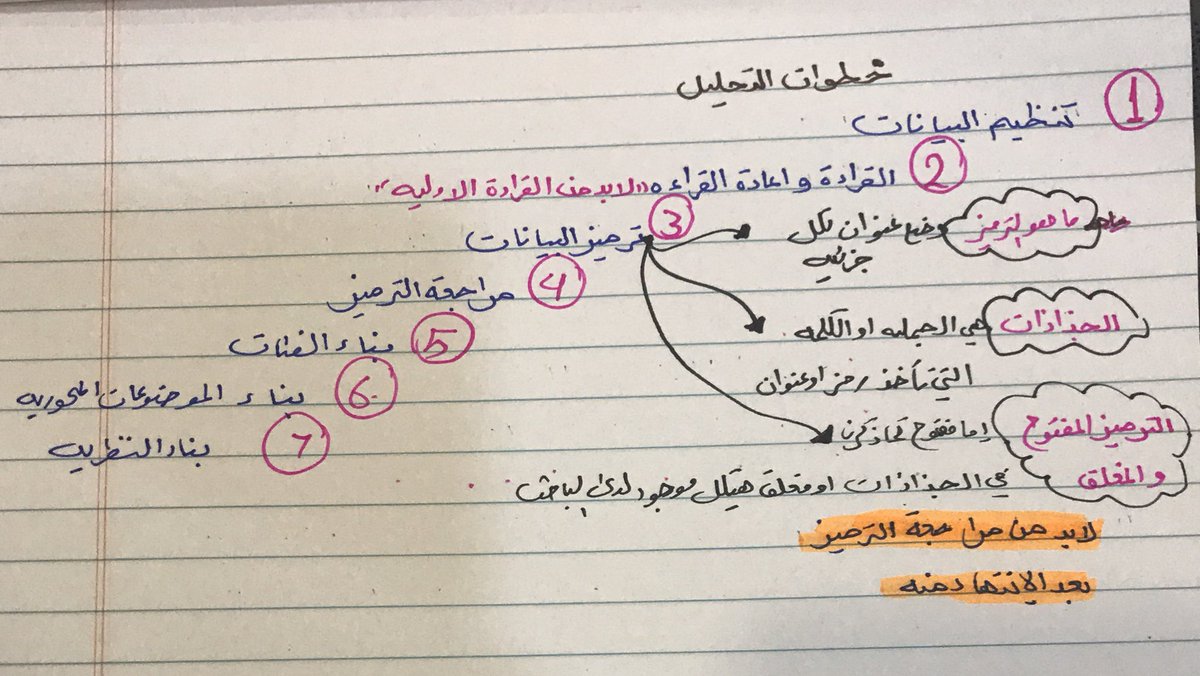 خطوات التحليل
1 تنظيم البيانات
2 القراءة واعادة القراءه "لابد من القراءة الاوليه"
3 ترميز البيانات
ماهو الترميز وضع عنوان لكل
جزئيه
4 مراجعة الترميز
الجذاذات هي الجمله او الكلمه
5 بناء الفئات
التي تأخذ رمز او عنوان
6 بناء الموضوعات المحوريه
الترميز المفتوح اما مفتوح كما ذكرنا
7 بناء النظريه
والمغلق في الجذاذات او مغلق هيكل موجود لدى الباحث
لابد من مراجعة الترميز
بعد الإنتهاء منه